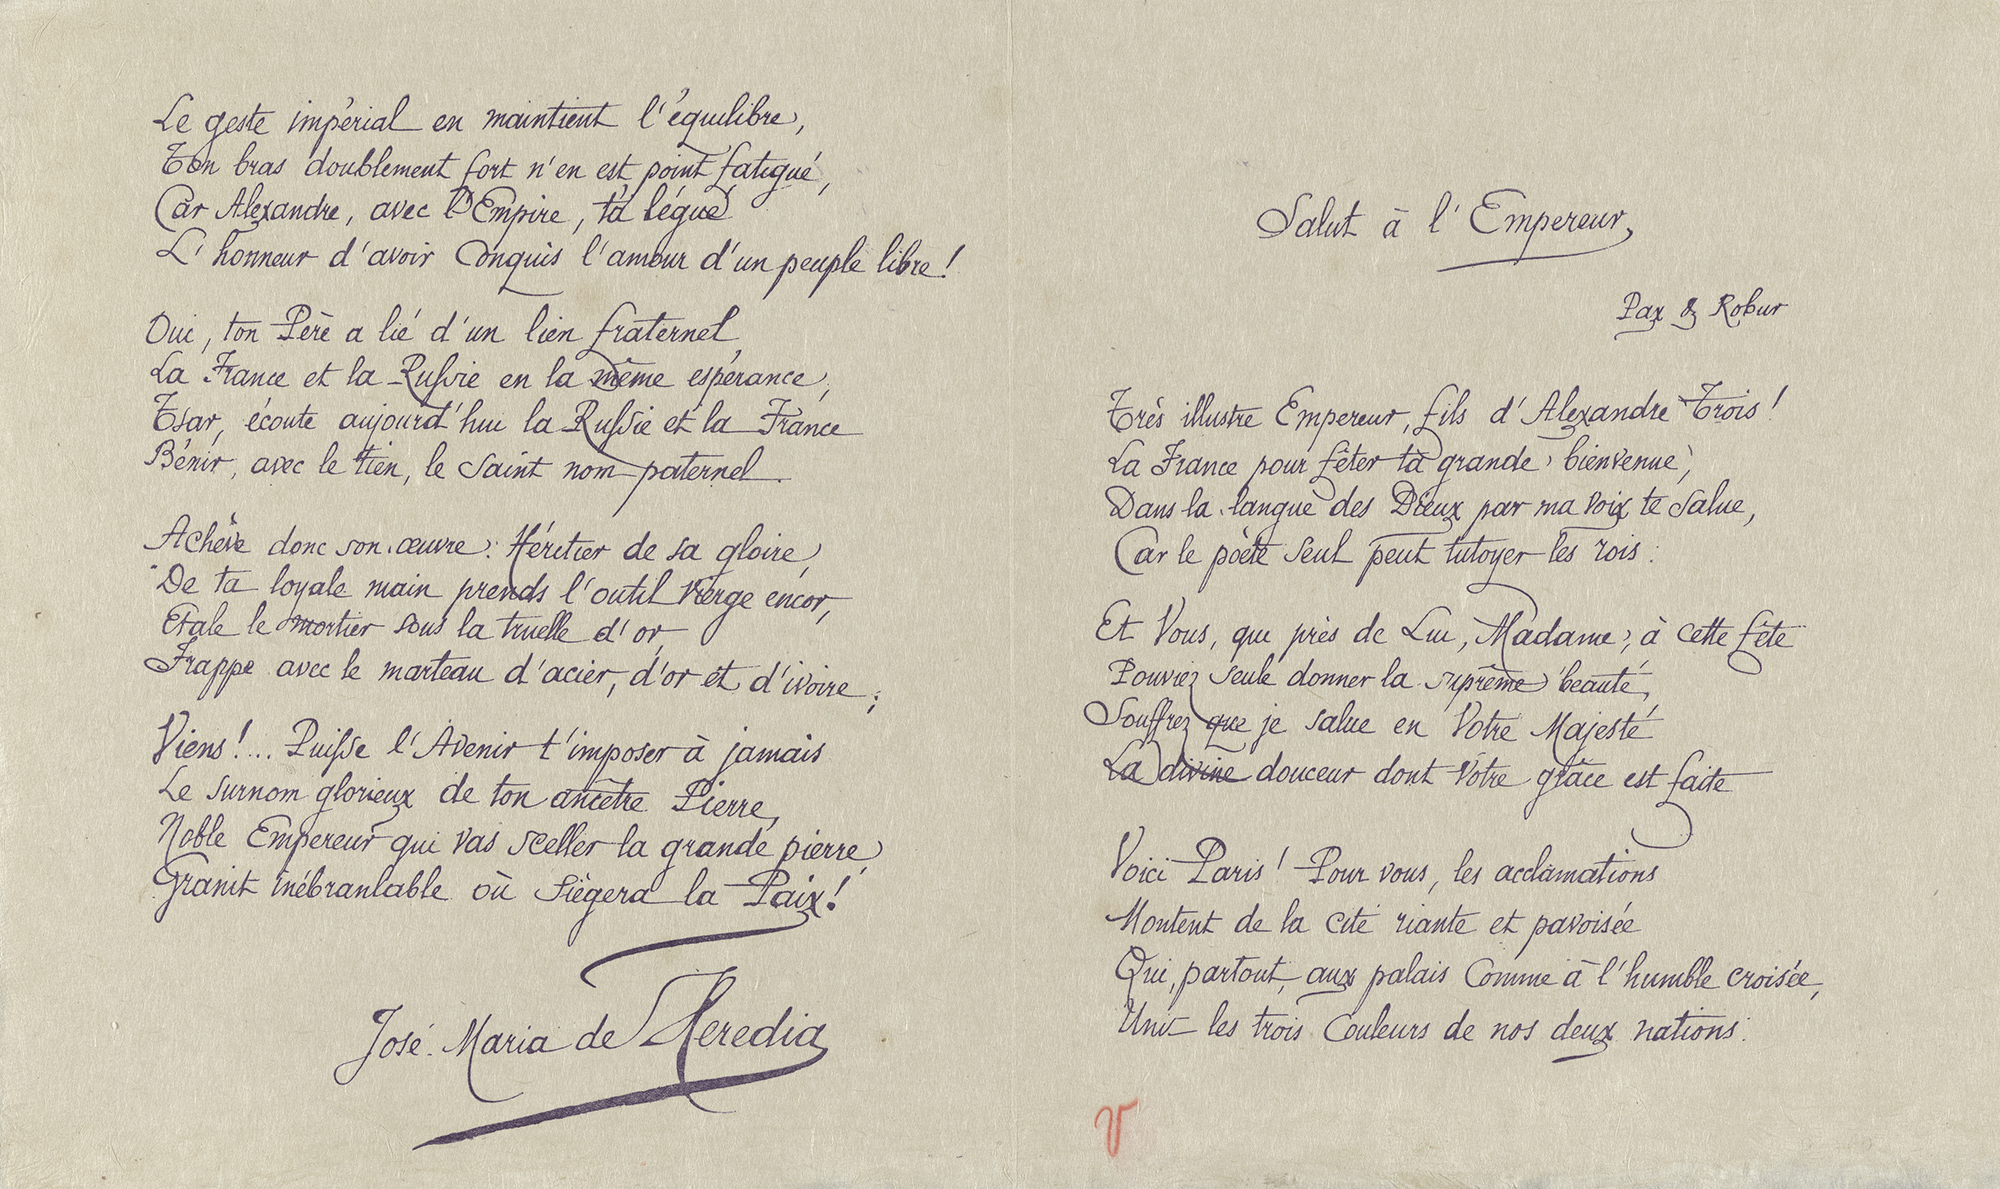 Le geste impérial en maintient l'équilibre,
Ton bras doublement fort n'en est point fatigué,
Car Alexandre, avec l'Empire, t'a légué
L'honneur d'avoir conquis l'amour d'un peuple libre!
Oui, ton Père a lié d'un lien fraternel
La France et la Russie en la même espérance,
Tsar, écoute aujourd'hui la Russie et la France
Bénir, avec le tien, le Saint nom paternel.
Achève donc son œuvre. Héritier de sa gloire,
De ta loyale main prends l'outil vierge encor,
Etale le mortier sous la truelle d'or,
Frappe avec le marteau d'acier, d'or et d'ivoire;
Viens!... Puisse l'Avenir t'imposer à jamais
Le surnom glorieux de ton ancêtre Pierre,
Noble Empereur qui vas sceller la grande pierre
Granit inébranlable où siègera la Paix!
José-Maria de Heredia
Salut à l'Empereur
Pax & Robur
Très illustre Empereur, fils d'Alexandre Trois!
La France pour fêter ta grande bienvenue,
Dans la langue des Dieux par ma voix te salue,
Car le poète seul peut tutoyer les rois.
Et Vous, qui près de Lui, Madame, à cette fête
Pouviez seule donner la suprême beauté,
Souffrez que je salue en Votre Majesté
La divine douceur dont Votre grâce est faite
Voici Paris! Pour vous, les acclamations
Montent de la cité riante et pavoisée
Qui, partout, aux palais comme à l'humble croisée,
Unit les trois couleurs de nos deux nations.
V